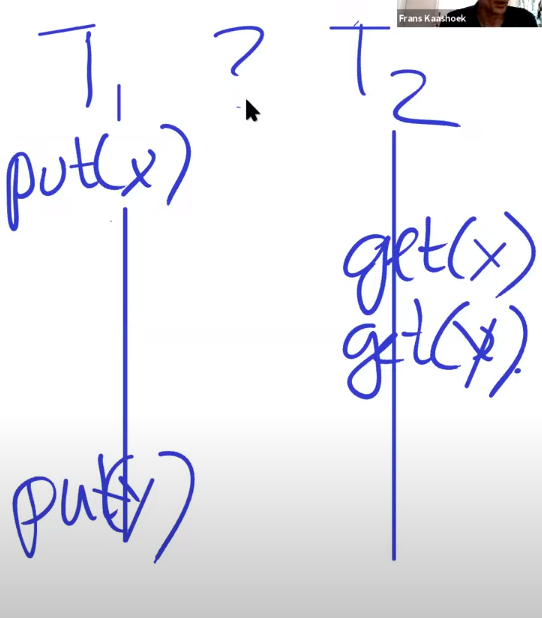 Frans Kaashoek
T1 ? T2
put(x)
get(x)
get(y).
put(y)